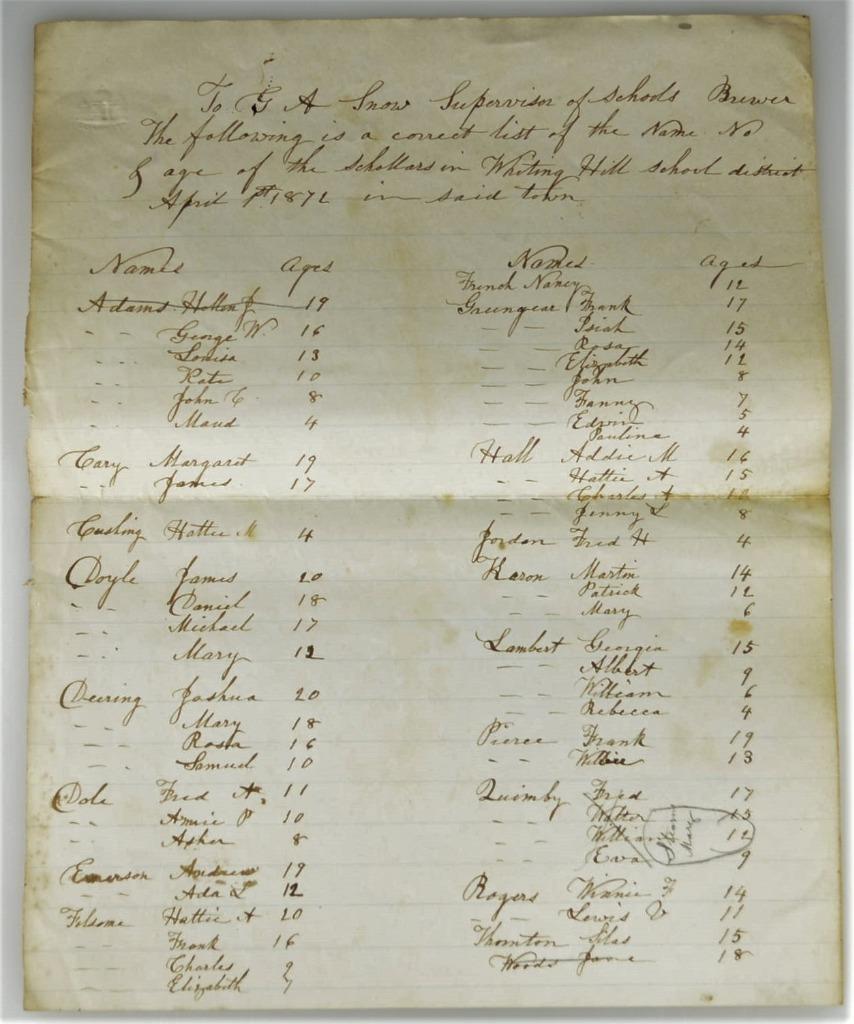 To G A Snow Supervisor of Schools Brewer
The following is a correct list of the Name No
& age of the Schollars in Whiting Hill school district
April 1st 1872 in said town
Names Ages
Adams Hellen J 19
- - George W. 16
- - Louisa 13
- - Kate 10
- - John C 8
- - Maud 4
Cary Margaret 19
- - James 17
Cushing Hattie M 4
Doyle James 20
- - Daniel 18
- - Michael 17
- - Mary 12
Deering Joshua 20
- - Mary 18
- - Rosa 16
- - Samuel 10
Dole Fred A. 11
- - Amie P 10
- - Asher 8
Emerson Andrew 19
- - Ada L 12
Folsome Hattie A 20
- - Frank 16
Charles 9
Elizabeth 7
Names Ages
French Nancy 12
Grungear Frank 17
- - Isiah 15
- - Rosa 14
- - Elizabeth 12
- - John 8
- - Fanny 7
- - Edwin 5
Paulina 4
Hall Addie M 16
- - Hattie A 15
- - Charles A 10
- - Jenny L 8
Jordan Fred H 4
Karon Martin 14
- - Patrick 12
- - Mary 6
Lambert Georgia 15
- - Albert 9
- - William 6
- - Rebecca 4
Pierce Frank 19
- - Willie 13
Quimby Fred 17
- - Walter 15
- - William 12
- - Eva 9
Mary
Rogers Winnie F 14
- - Lewis V 11
Thornton Silas 15
Woods Jane 18